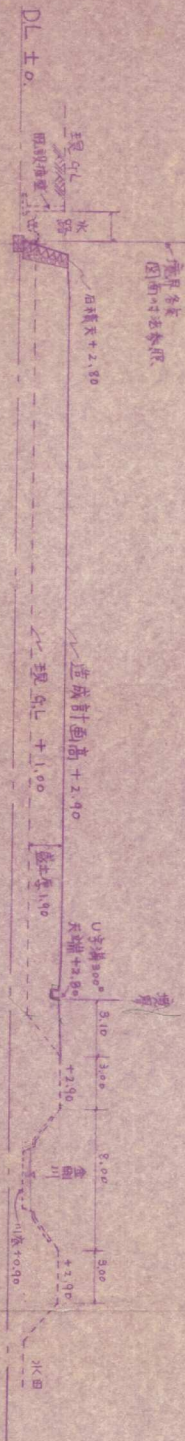 D.L ±0.
現 G.L
水路
境界 杭
図面寸法参照
石積天+2.80
造成計画高 +2.90
現 G.L +1.00
盛土厚1.90
U字溝300
天端+2.80
境界
3.10
3.00
8.00
3.00
+2.90
+2.90
川底+0.90
水田